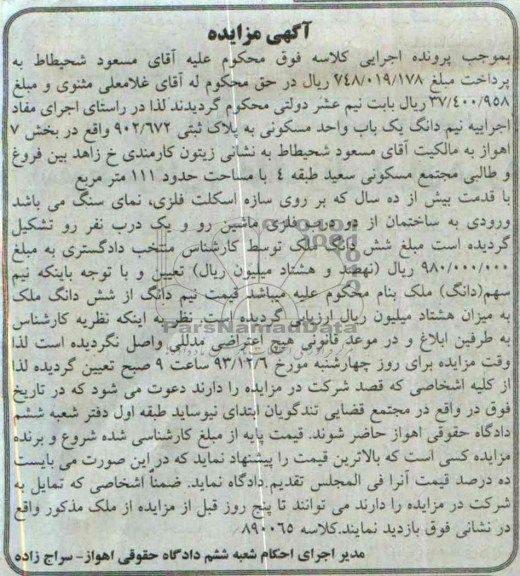 آگهی مزایده
بموجب پرونده اجرایی کلاسه فوق محکوم علیه آقای مسعود شحیطاط به
پرداخت مبلغ ۷۴۸/۰۱۹/۱۷۸ ریال در حق محکوم له آقای غلامعلی مثنوی و مبلغ
۳۷/۴۰۰/۹۵۸ ریال بابت نیم عشر دولتی محکوم گردیدند لذا در راستای اجرای مفاد
اجراییه نیم دانگ یک باب واحد مسکونی به پلاک ثبتی ۹۰۲/۶۷۲ واقع در بخش ۷
اهواز به مالکیت آقای مسعود شحیطاط به نشانی زیتون کارمندی خ زاهد بین فروغ
و طالبی مجتمع مسکونی سعید طبقه ۴ با مساحت حدود ۱۱۱ متر مربع
با قدمت بیش از ده سال که بر روی سازه اسکلت فلزی، نمای سنگ می باشد
ورودی به ساختمان از دو درب فلزی ماشین رو و یک درب نفر رو تشکیل
گردیده است مبلغ شش دانگ ملک توسط کارشناس منتخب دادگستری به مبلغ
۹۸۰/۰۰۰/۰۰۰ ریال (نهصد و هشتاد میلیون ریال) تعیین و با توجه باینکه نیم
سهم(دانگ) ملک بنام محکوم علیه میباشد قیمت نیم دانگ از شش دانگ ملک
به میزان هشتاد میلیون ریال ارزیابی گردیده است. نظر به اینکه نظریه کارشناس
به طرفین ابلاغ و در موعد قانونی هیچ اعتراضی مدللی واصل نگردیده است لذا
وقت مزایده برای روز چهارشنبه مورخ ۹۳/۱۲/۶ ساعت ۹ صبح تعیین گردیده لذا
از کلیه اشخاصی که قصد شرکت در مزایده را دارند دعوت می شود که در تاریخ
فوق در واقع در مجتمع قضایی تندگویان ابتدای نیوساید طبقه اول دفتر شعبه ششم
دادگاه حقوقی اهواز حاضر شوند. قیمت پایه از مبلغ کارشناسی شده شروع و برنده
مزایده کسی است که بالاترین قیمت را پیشنهاد نماید که در این صورت می بایست
ده درصد قیمت آنرا فی المجلس تقدیم دادگاه نماید. ضمناً اشخاصی که تمایل به
شرکت در مزایده را دارند می توانند تا پنج روز قبل از مزایده از ملک مذکور واقع
در نشانی فوق بازدید نمایند.کلاسه ۸۹۰۰۶۵
مدیر اجرای احکام شعبه ششم دادگاه حقوقی اهواز- سراج زاده
ParsNamadData